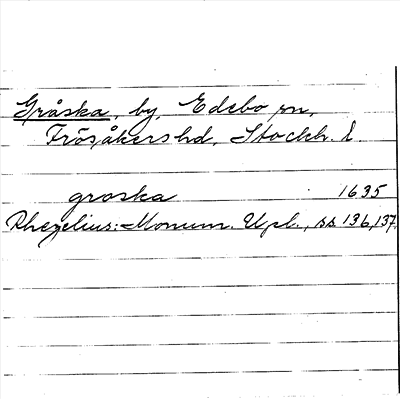 Gråska, by, Edebo sn,
Frösåkers hd, Stockh. l.
groska 1635
Rhezelius: Monum. Upl., ss 136, 137.